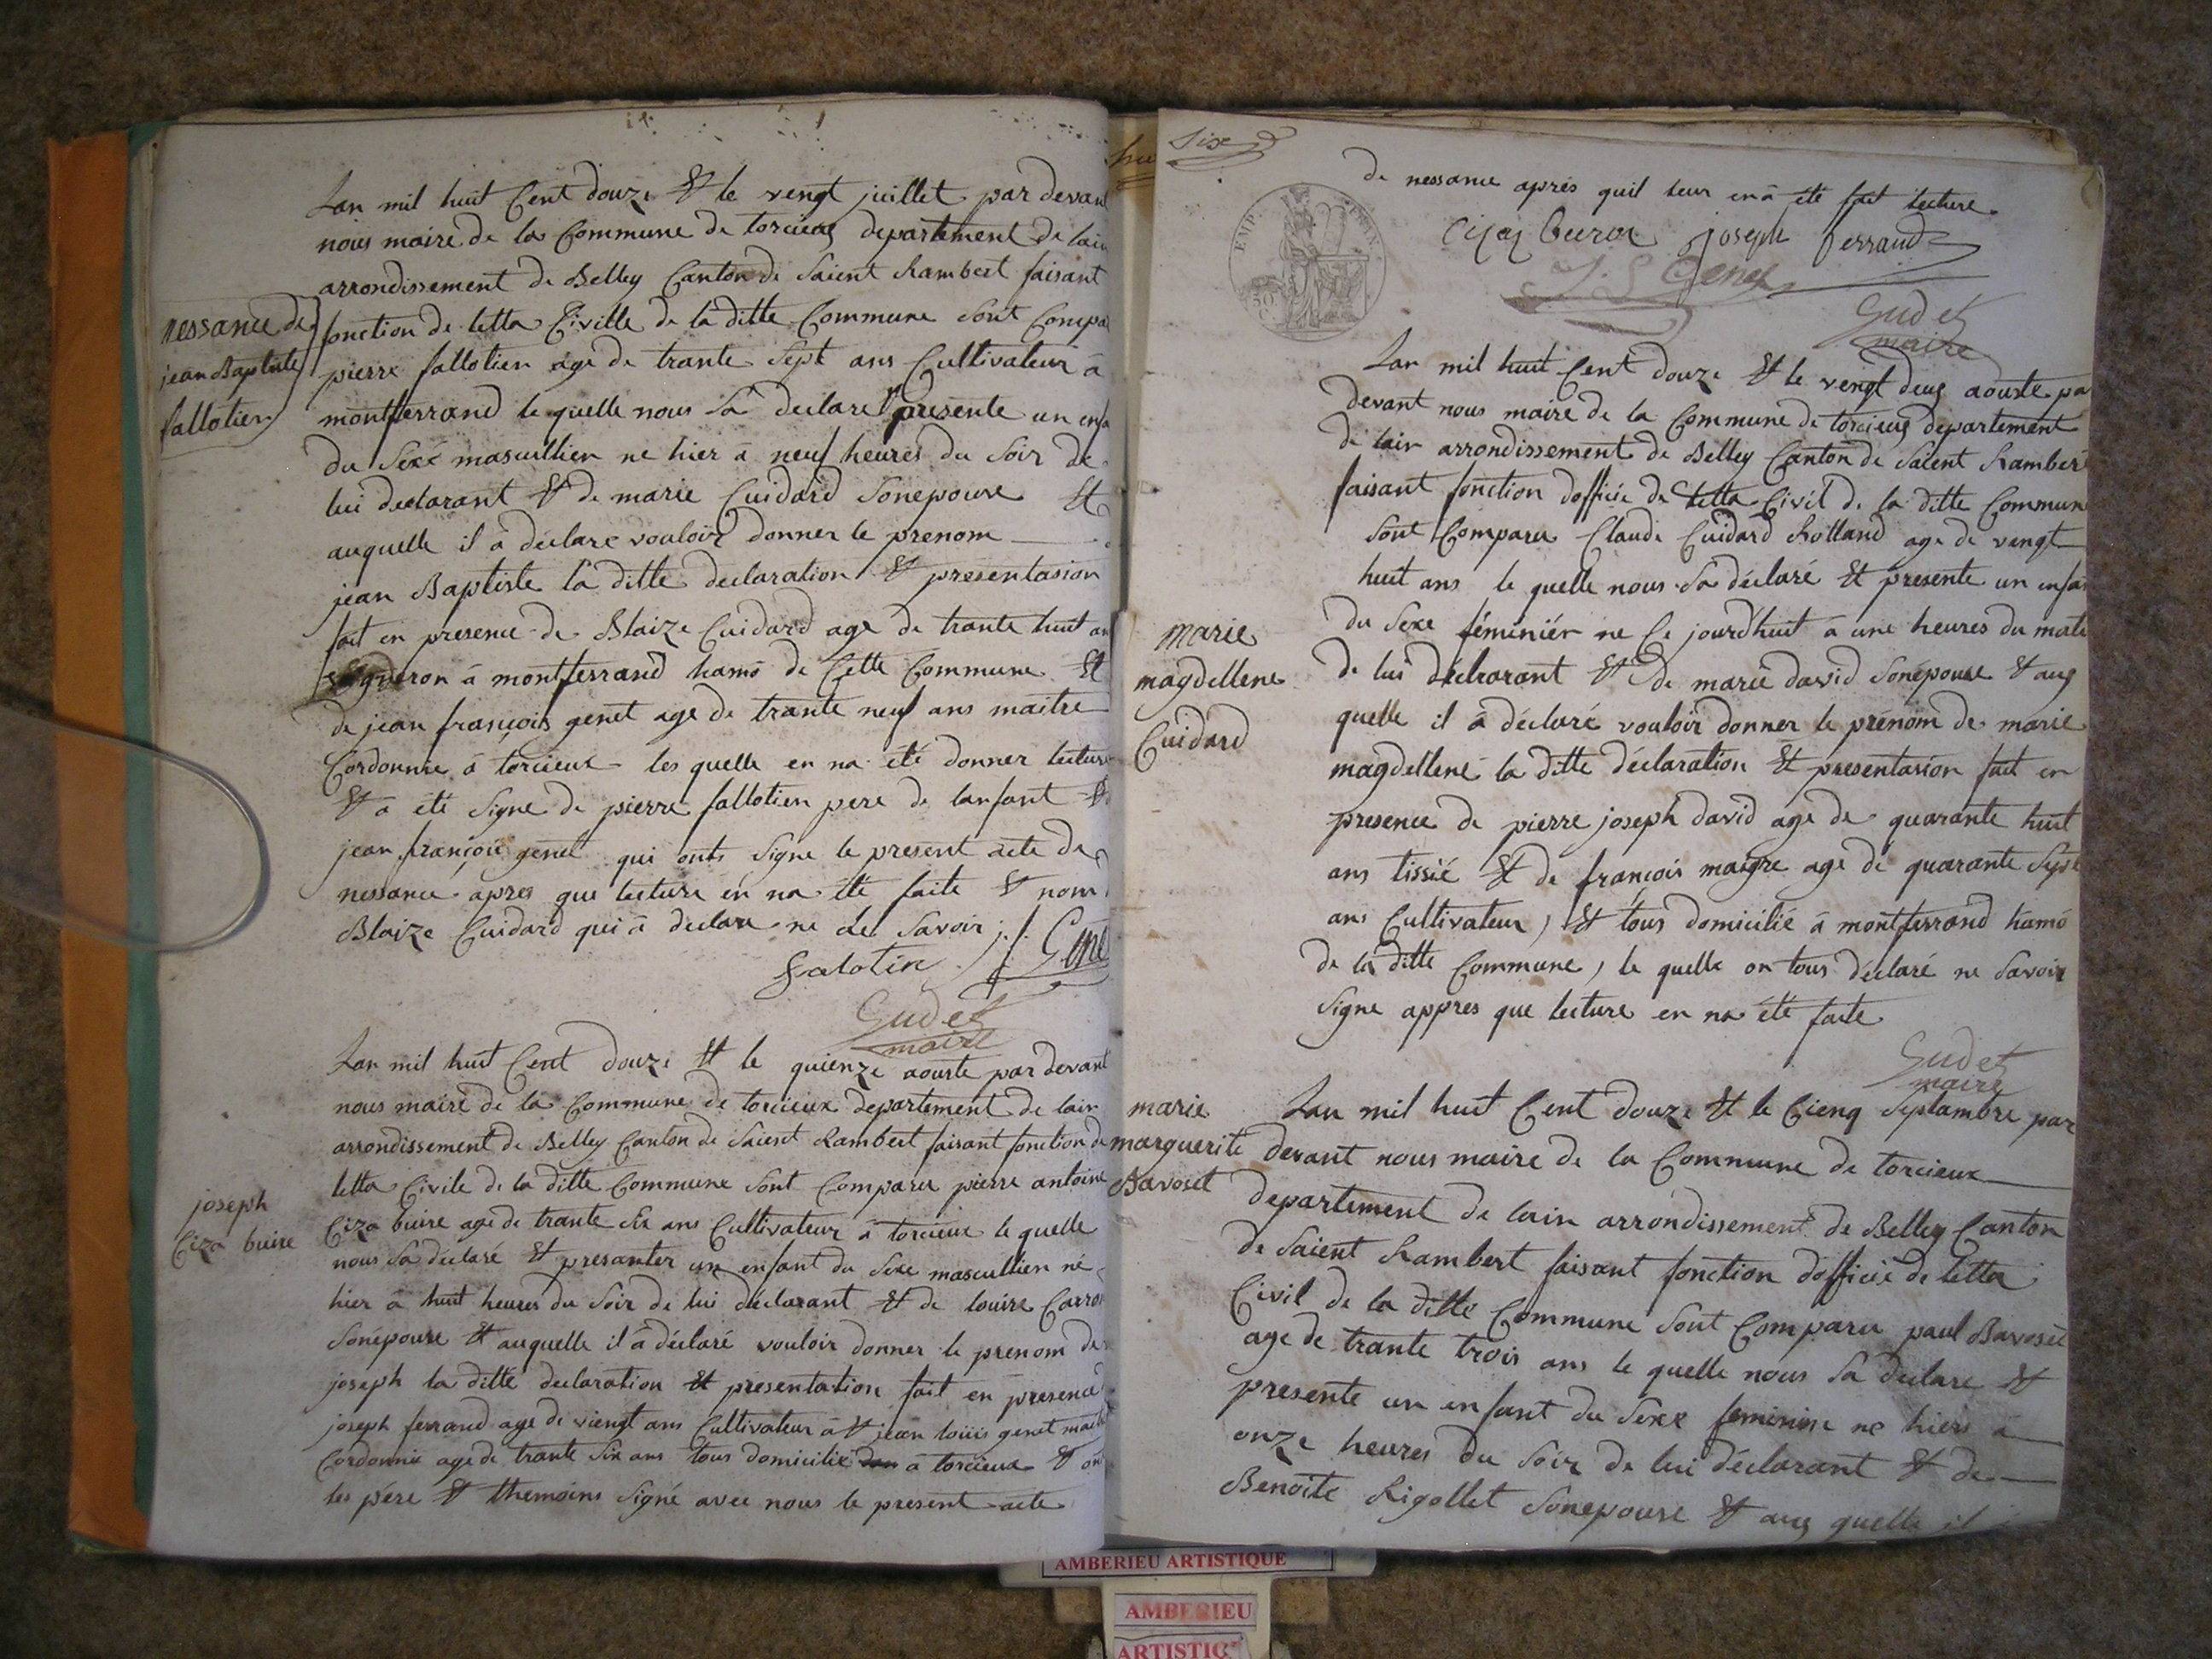 Lan mil huit Cent douze Et le vengt juillet par devant
nous maire de la Commune de torcieux departement de lain
arrondissement de Belley Canton de Saient Rambert faisant
nessance de
jean Baptiste
fallotien
fonction de letta Civille de la ditte Commune Sont Compa
pierre fallotien age de trante Sept ans Cultivateur a
montferrand le quelle nous la declare presente un enfa
du Sexe mascullien ne hier a neuf heures du Soir de
lui declarant Et de marie Cuidard Sonepouse Et
auquelle il a declare vouloir donner le prenom
jean Baptiste la ditte declaration Et presentasion
fait en presence de Blaize Cuidard age de trante huit an
a montferrand hamo de Cette Commune Et
de jean françois genet age de trante neuf ans maitre
Cordonnie a torcieux les quelle en na été donner lecture
Et a été Signe de pierre fallotien pere de lanfant Et
jean françois genet qui onts Signe le present acte de
nessance apres que lecture en na été faite Et nom
Blaize Cuidard qui a declare ne le Savoir
falotien j. f. Gene
Gudet
maire
Lan mil huit Cent douze Et le quienze aouste par devant
nous maire de la Commune de torcieux departement de lain
arrondissement de Belley Canton de Saient Rambert faisant fonction de
letta Civile de la ditte Commune Sont Comparu pierre antoine
joseph
Ciza buire
Ciza buire age de trante Six ans Cultivateur a torcieux le quelle
nous la declaré Et presanter un enfant du Sexe mascullien né
hier a huit heures du Soir de lui déclarant Et de louise Carron
Sonépouse Et auquelle il a déclaré vouloir donner le prenom de
joseph la ditté declaration Et presentation fait en presence
joseph ferrand age de viengt ans Cultivateur a Et jean loüis genet mait
Cordonnie age de trante Six ans tous domicilié a torcieux Et on
les pére Et themoins Signé avec nous le present acte
Six
de nessance aprés quil leur en a été fait lecture
joseph ferrand
J. L. Genet
EMP. FRAN.
Gudet
maire
Lan mil huit Cent douze Et le vengt deux aouste pa
devant nous maire de la Commune de torcieux departement
de lain arrondissement de Belley Canton de Saient Rambert
faisant fonction dofficié de letta Civil de la ditte Commun
Sont Comparu Claude Cuidard Rolland age de vengt
huit ans le quelle nous la déclaré Et présente un enfan
du Sexe féminién ne Ce jourdhuit a une heures du mati
marie
magdellene
Cuidard
de lui déclarant Et de marie david Sonépouse Et aux
quelle il a déclaré vouloir donner le prénom de marie
magdellene la ditte déclaration Et presentasion fait en
presence de pierre joseph david age de quarante huit
ans tissié Et de françois maigre age de quarante Sept
ans Cultivateur, Et tous domicilié a montferrand hamo
de la ditte Commune, le quelle on tous déclaré ne Savoir
Signe appres que lecture en na été faite
Gudet
maire
marie
marguerite
Bavoset
Lan mil huit Cent douze Et le Cienq Septambre par
devant nous maire de la Commune de torcieux
departement de lain arrondissement de Belley Canton
de Saient Rambert faisant fonction dofficié de letta
Civil de la ditte Commune Sont Comparu paul Bavoset
age de trante trois ans le quelle nous la declare Et
presente un enfant du Sexe feminin ne hiers a
onze heures du Soir de lui déclarant Et de
Benoite Rigollet Sonepouse Et aux quelle il
AMBERIEU ARTISTIQUE
AMBERIEU
ARTISTIQ